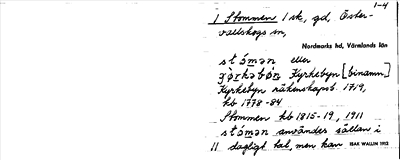 1-4
1 Stommen 1 sk, gd, Öster-
vallskogs sn,
Nordmarks hd, Värmlands län
stómǝn eller
Kyrkebyn [binamn]
Kyrkebyn räkenskapsb. 1719,
kb 1778-84
Stommen kb 1815-19, 1911
stómǝn användes sällan i
11 dagligt tal, men kan ISAK WALLIN 1912